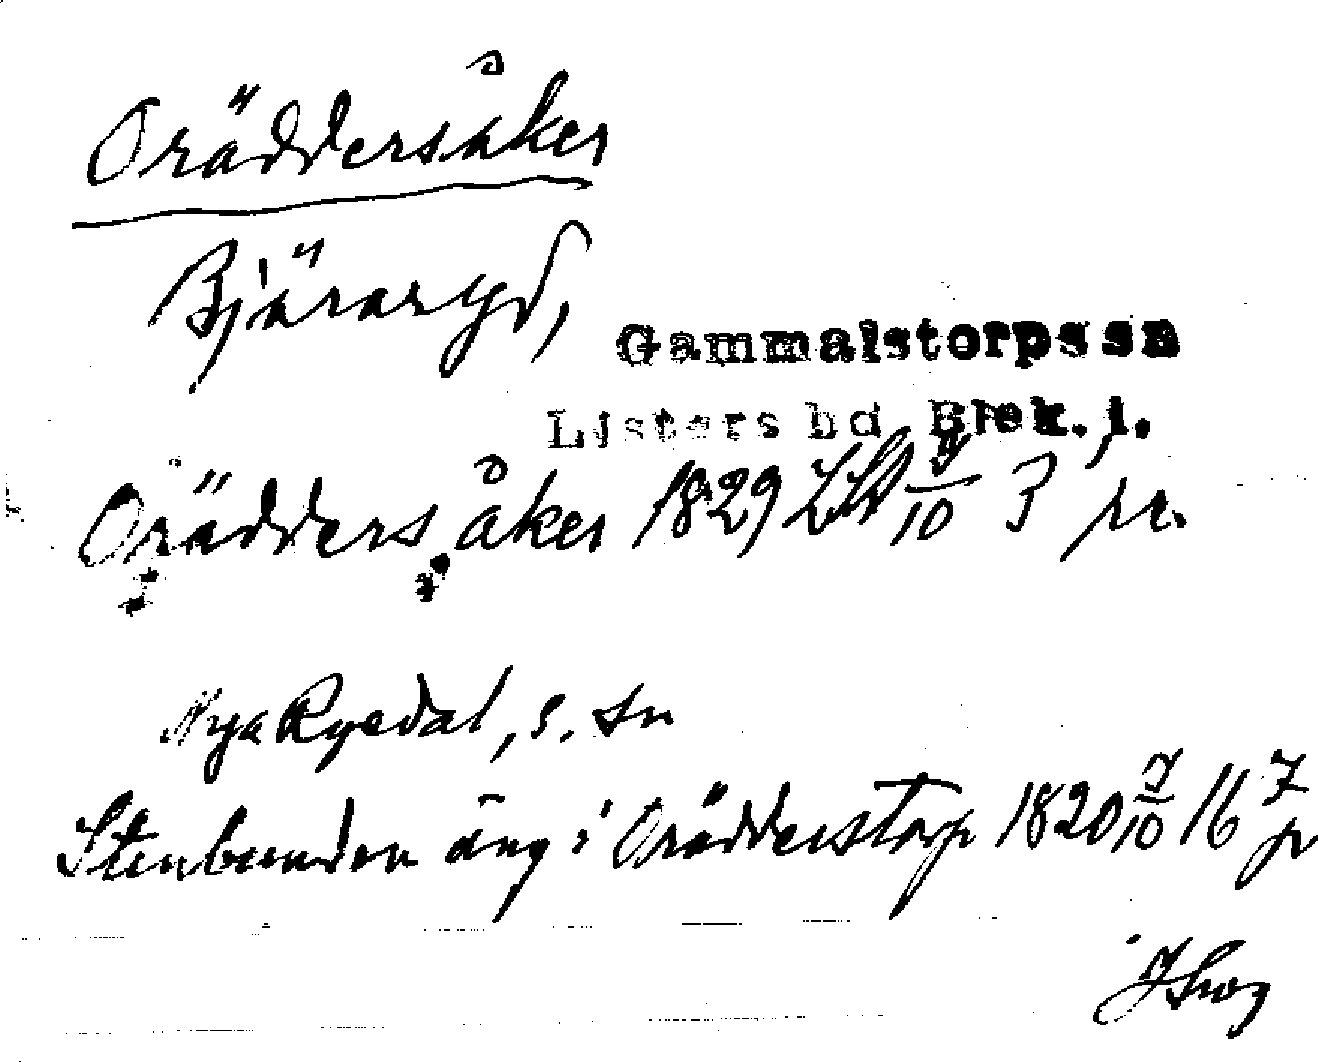 Oräddersåker
Bjäraryd,
Gammalstorps sn
Listers hd Blek. l.
Orädders åker 1829 LSt 9/10 3 
Nya Ryedal, s. sn
Stenbunden äng i Orädderstorp 1820 7/10 16